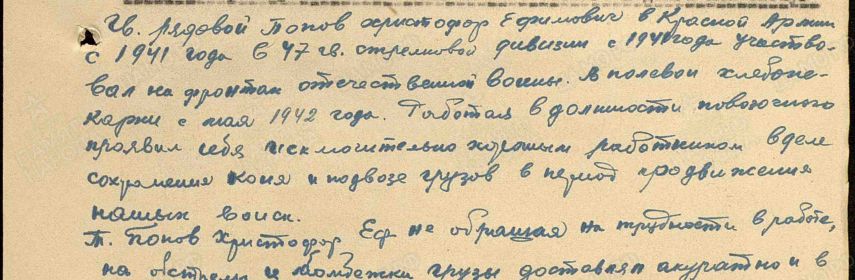 Гв. рядовой Попов Христофор Ефимович в Красной Армии
с 1941 года в 47 гв. стрелковой дивизии с 1941 года участво-
вал на фронтах отечественной войны. В полевой хлебопе-
карни с мая 1942 года. Работая в должности повозочного
проявил себя исключительно хорошим работником в деле
сохранения коня и подвозе грузов в период продвижения
наших войск.
Т. Попов Христофор Еф. не обращая на трудности в работе,
на обстрелы и бомбежки грузы доставлял акуратно и в